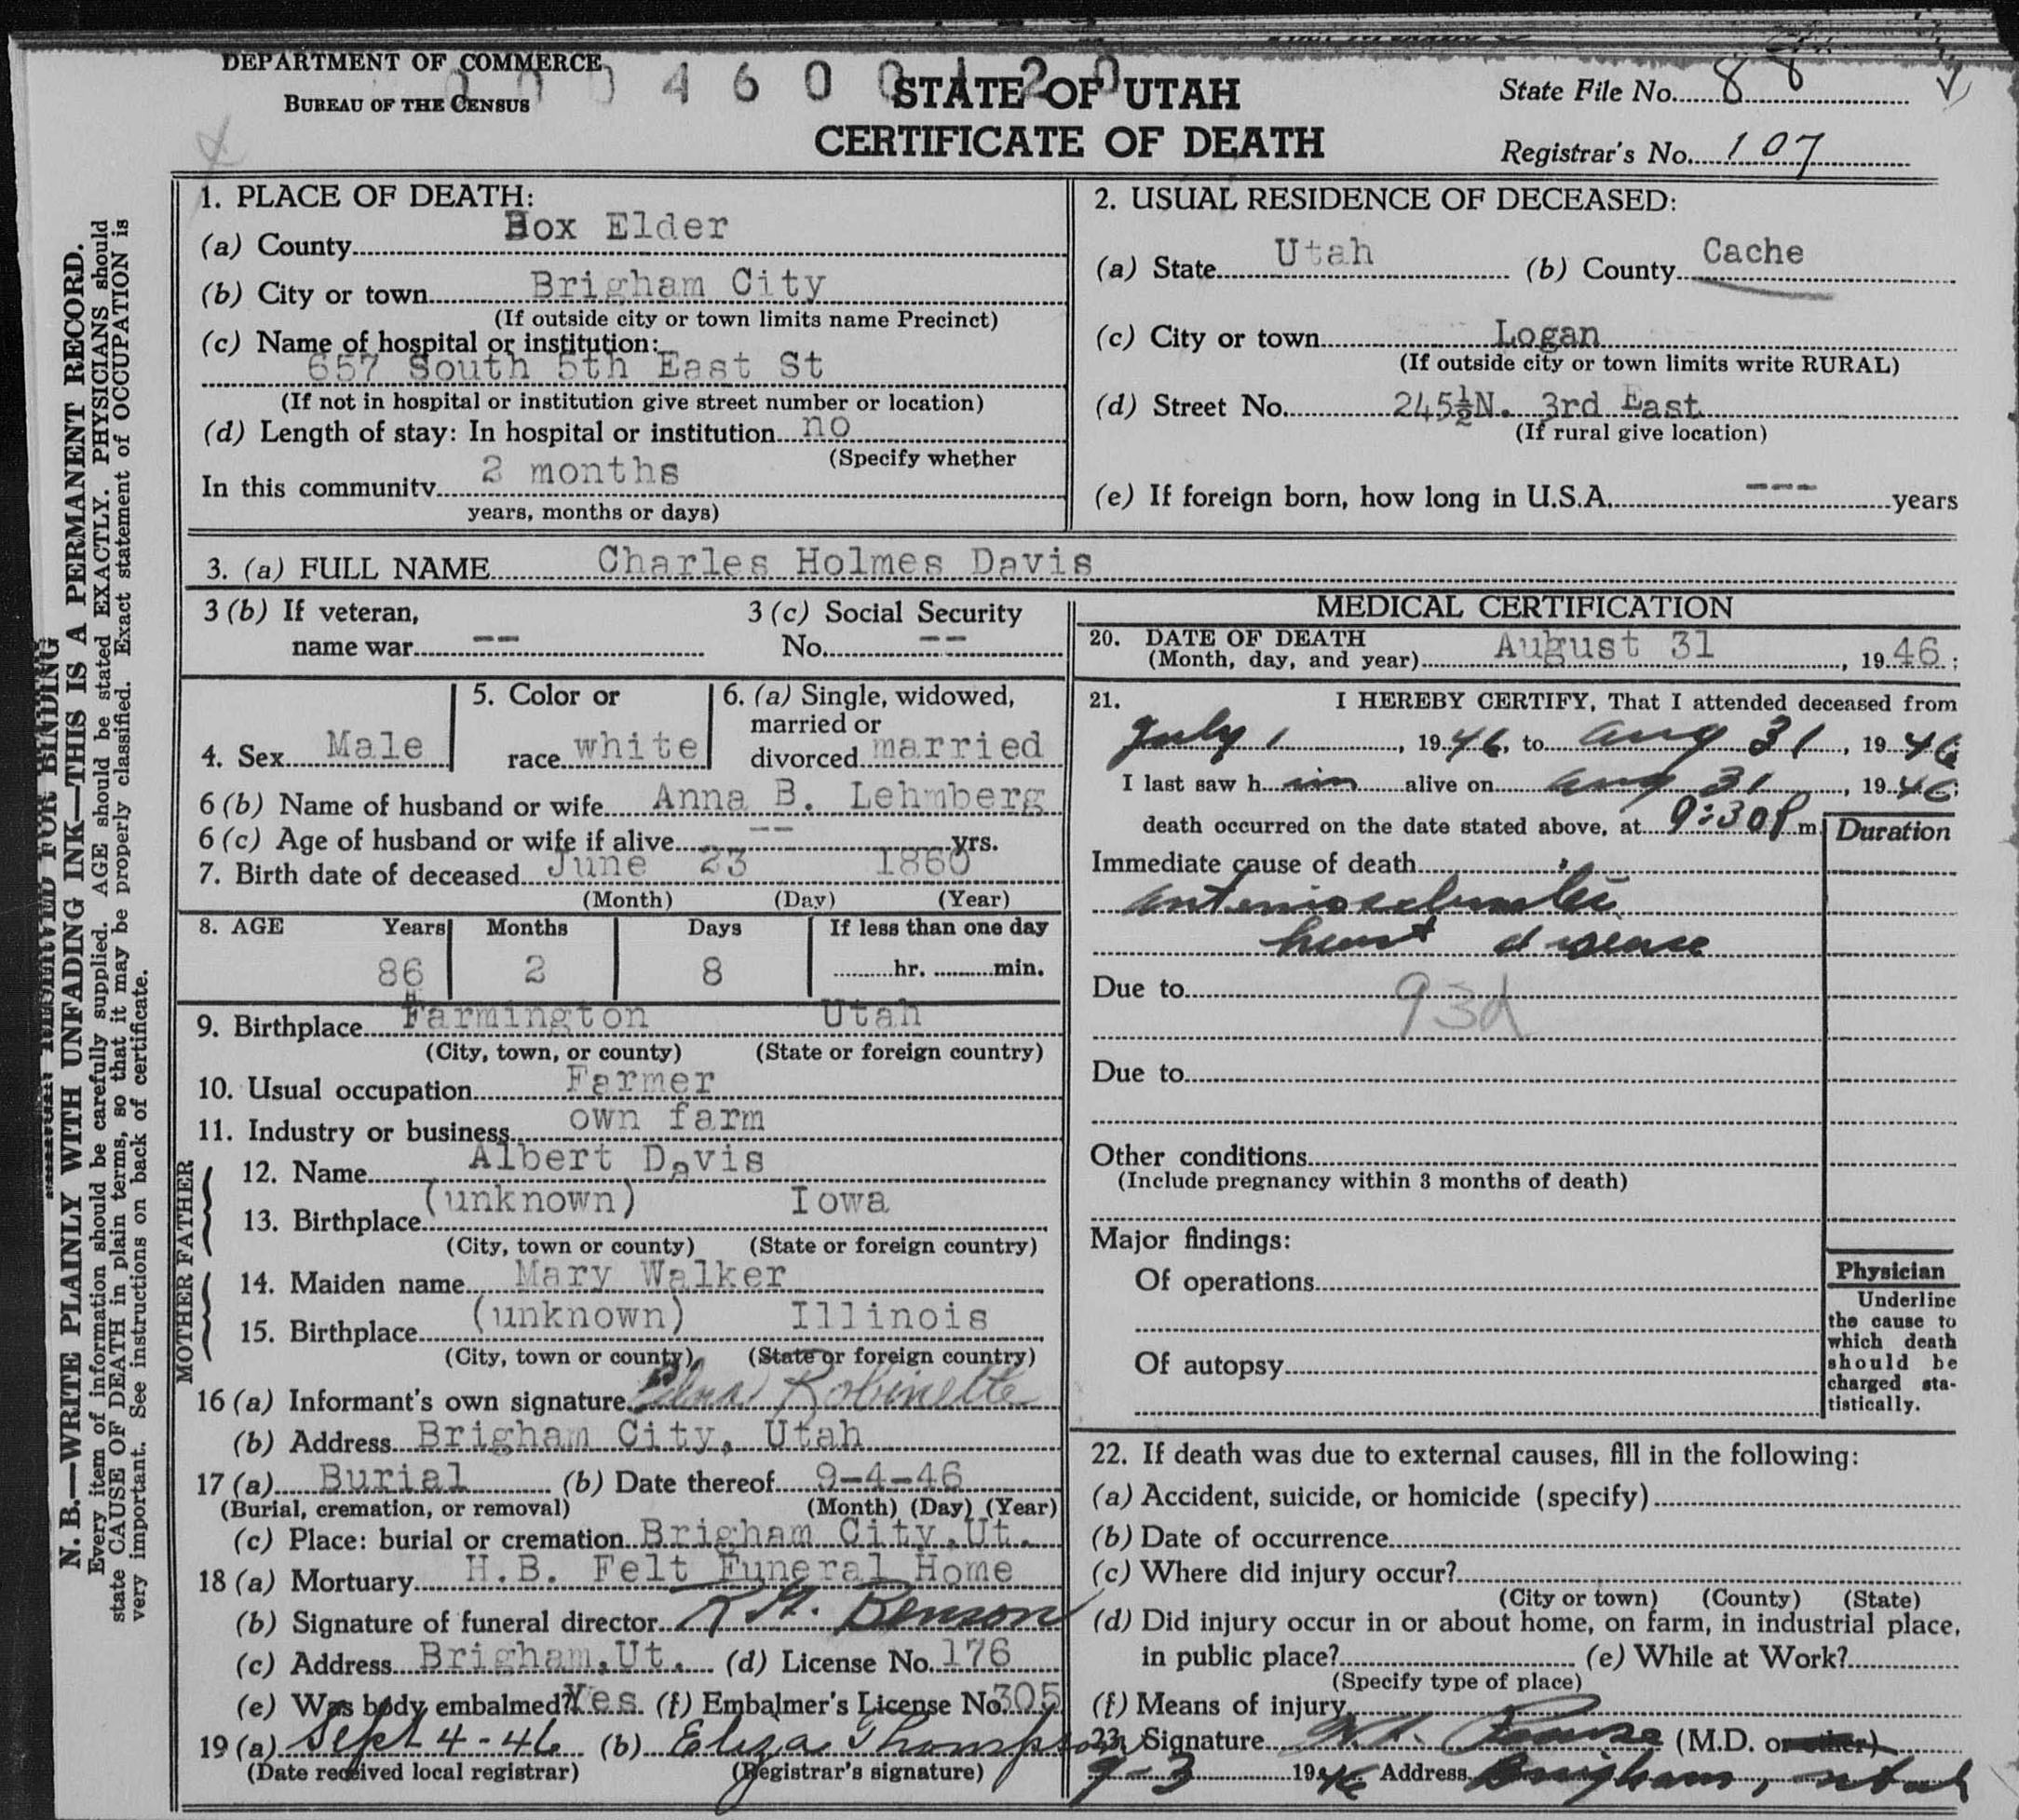 DEPARTMENT OF COMMERCE
BUREAU OF THE CENSUS
4 6 0 0 1 2 0
STATE OF UTAH
CERTIFICATE OF DEATH
State File No. 88
Registrar's No. 107
N. B.—WRITE PLAINLY WITH UNFADING INK—THIS IS A PERMANENT RECORD.
Every item of information should be carefully supplied. AGE should be stated EXACTLY. PHYSICIANS should
state CAUSE OF DEATH in plain terms, so that it may be properly classified. Exact statement of OCCUPATION is
very important. See instructions on back of certificate.
1. PLACE OF DEATH:
(a) County Box Elder
(b) City or town Brigham City
(If outside city or town limits name Precinct)
(c) Name of hospital or institution:
657 South 5th East St
(If not in hospital or institution give street number or location)
(d) Length of stay: In hospital or institution no
(Specify whether
In this community 2 months
years, months or days)
2. USUAL RESIDENCE OF DECEASED:
(a) State Utah (b) County Cache
(c) City or town Logan
(If outside city or town limits write RURAL)
(d) Street No. 245½N. 3rd East
(If rural give location)
(e) If foreign born, how long in U.S.A. --- years
3. (a) FULL NAME Charles Holmes Davis
3 (b) If veteran,
name war --
3 (c) Social Security
No. --
4. Sex Male
5. Color or
race white
6. (a) Single, widowed,
married or
divorced married
6 (b) Name of husband or wife Anna B. Lehmberg
6 (c) Age of husband or wife if alive -- yrs.
7. Birth date of deceased June 23 1860
(Month) (Day) (Year)
8. AGE Years Months Days If less than one day
86 2 8 hr. min.
9. Birthplace Farmington Utah
(City, town, or county) (State or foreign country)
10. Usual occupation Farmer
11. Industry or business own farm
FATHER
12. Name Albert Davis
13. Birthplace (unknown) Iowa
(City, town or county) (State or foreign country)
MOTHER
14. Maiden name Mary Walker
15. Birthplace (unknown) Illinois
(City, town or county) (State or foreign country)
16 (a) Informant's own signature Robinette
(b) Address Brigham City, Utah
17 (a) Burial (b) Date thereof 9-4-46
(Burial, cremation, or removal) (Month) (Day) (Year)
(c) Place: burial or cremation Brigham City, Ut.
18 (a) Mortuary H.B. Felt Funeral Home
(b) Signature of funeral director Benson
(c) Address Brigham, Ut. (d) License No. 176
(e) Was body embalmed? Yes (f) Embalmer's License No. 305
19 (a) Sept 4-46 (b) Eliza Thompson
(Date received local registrar) (Registrar's signature)
MEDICAL CERTIFICATION
20. DATE OF DEATH
(Month, day, and year) August 31, 1946;
21. I HEREBY CERTIFY, That I attended deceased from
July 1, 1946, to Aug 31, 1946
I last saw h im alive on Aug 31, 1946;
death occurred on the date stated above, at 9:30 P m.
Duration
Immediate cause of death
arteriosclerotic
heart disease
Due to 93d
Due to
Other conditions
(Include pregnancy within 3 months of death)
Major findings:
Of operations
Of autopsy
Physician
Underline
the cause to
which death
should be
charged sta-
tistically.
22. If death was due to external causes, fill in the following:
(a) Accident, suicide, or homicide (specify)
(b) Date of occurrence
(c) Where did injury occur?
(City or town) (County) (State)
(d) Did injury occur in or about home, on farm, in industrial place,
in public place? (e) While at Work?
(Specify type of place)
(f) Means of injury
23. Signature (M.D. or other)
9-3 1946 Address Brigham, Utah